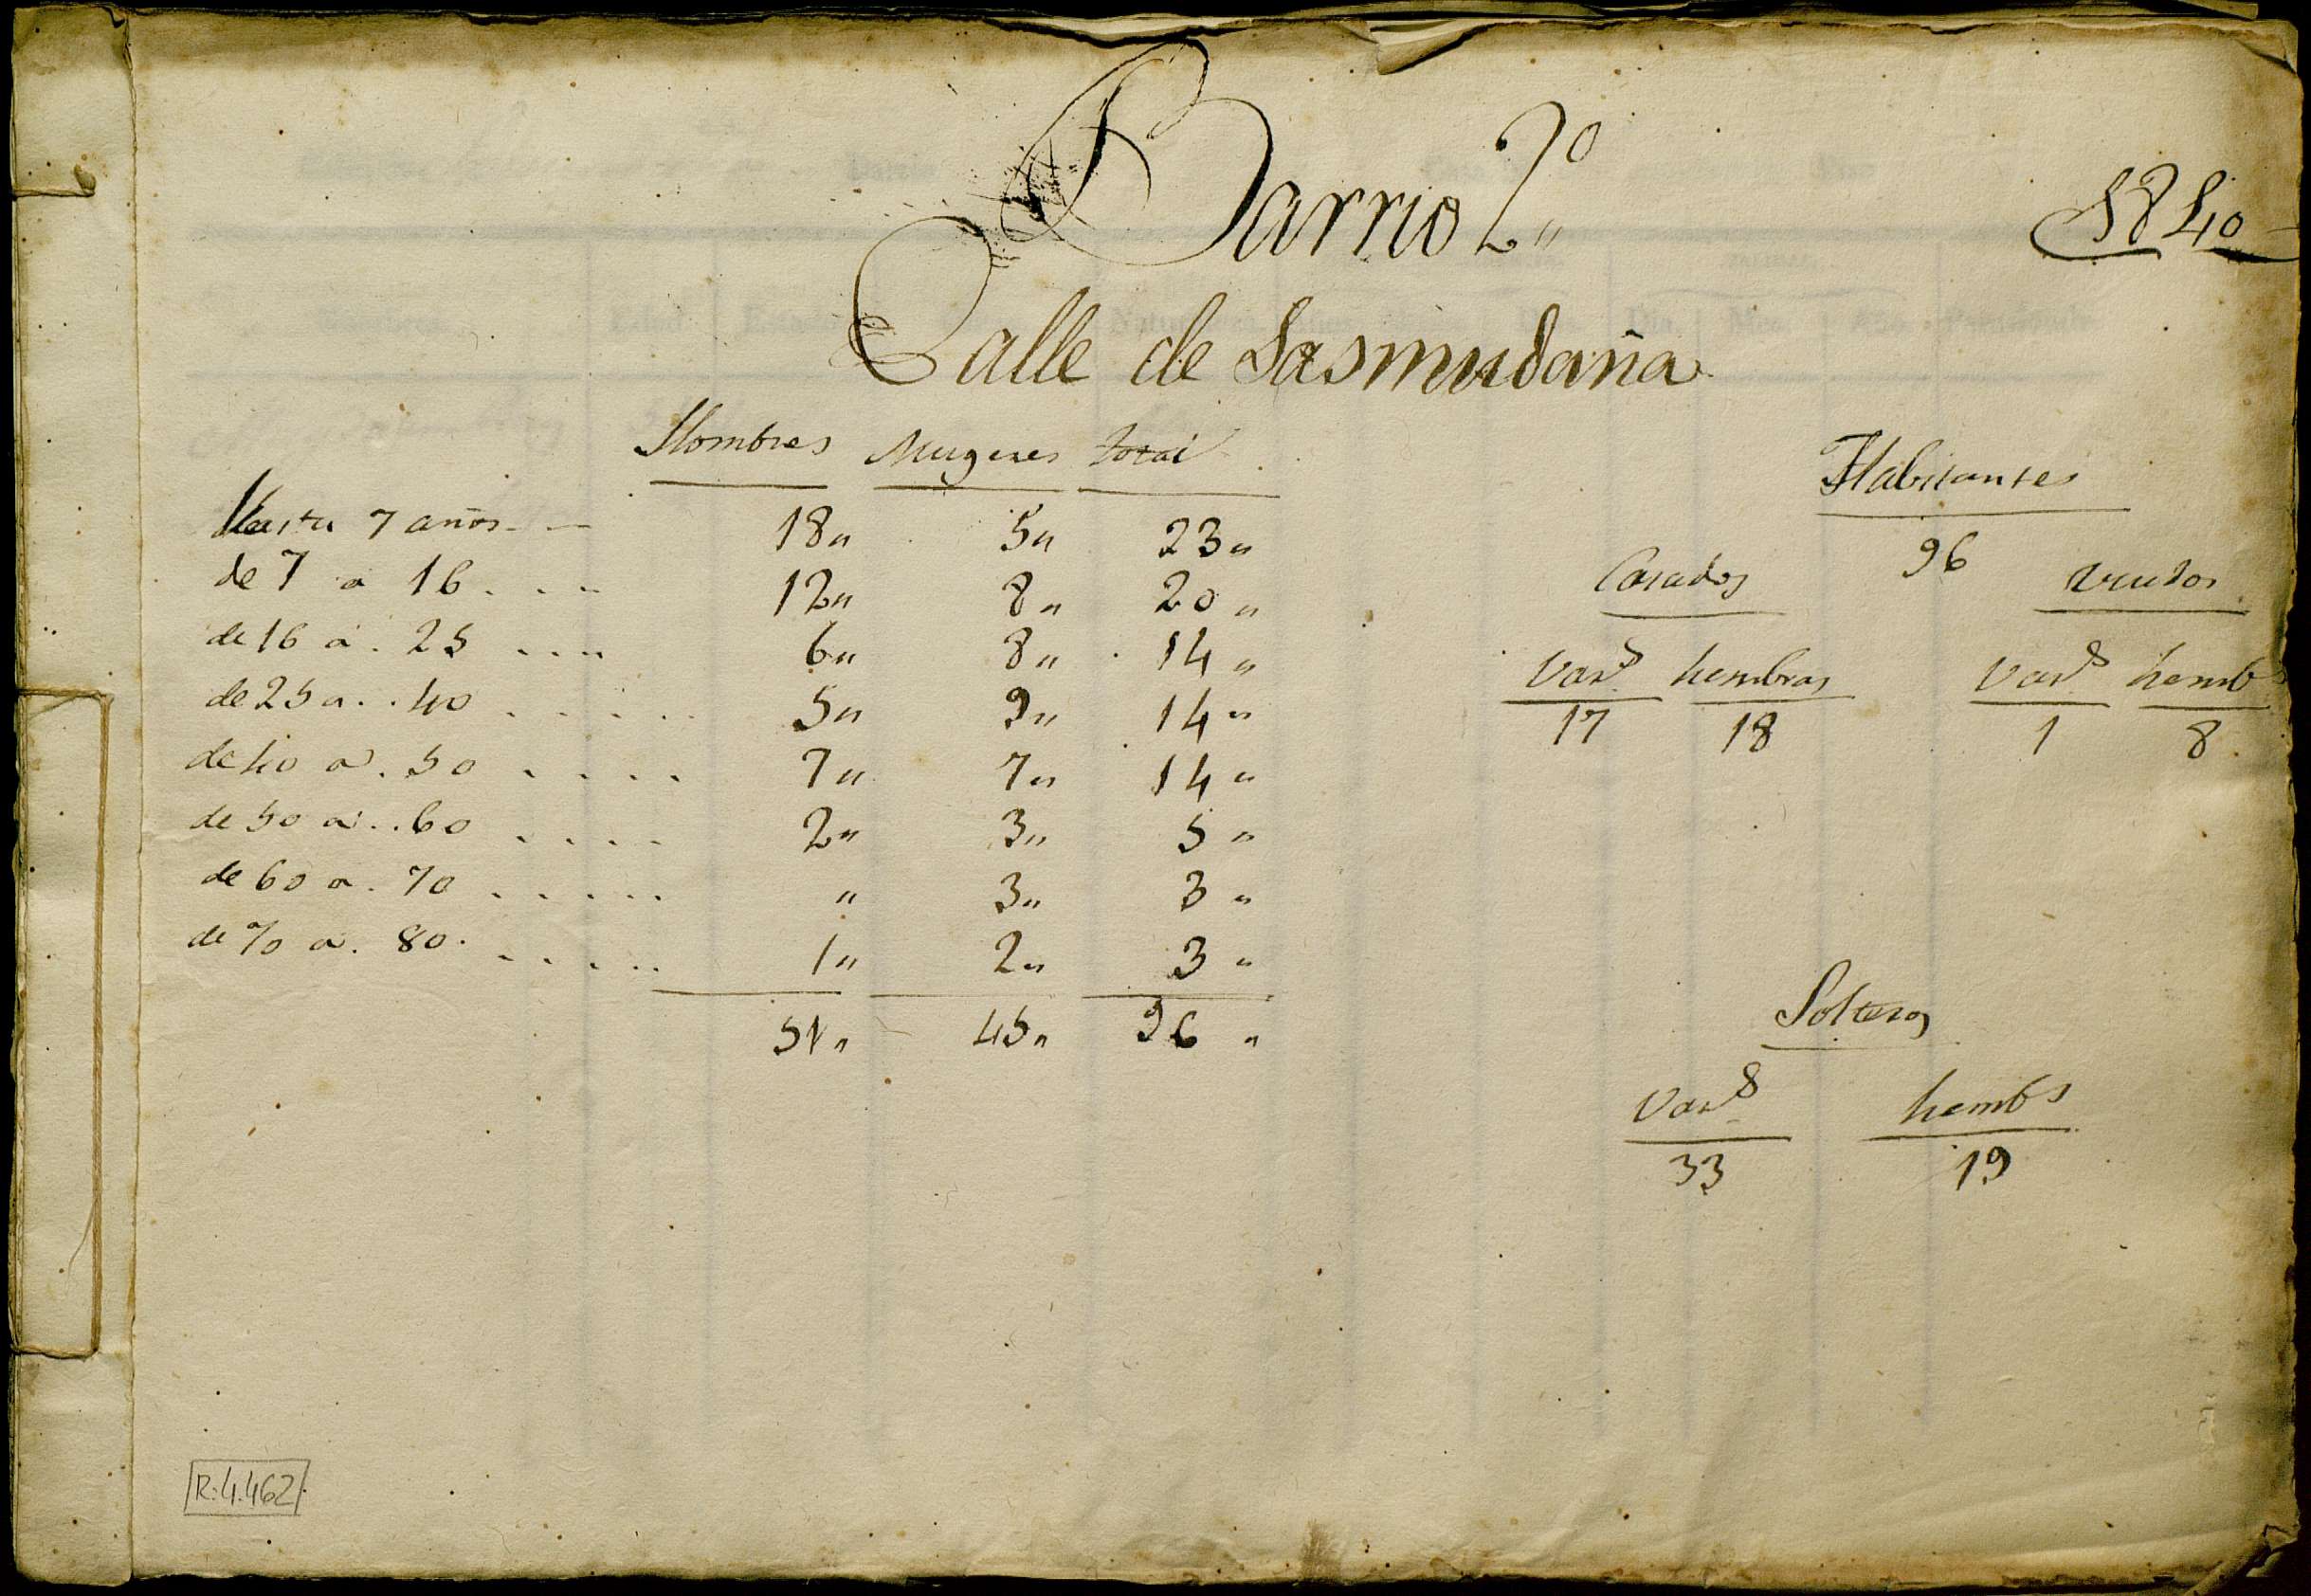 Barrio 2º„
1840
Calle de Sasmudaña
Hombres Mugeres total
Hasta 7 años 18„ 5„ 23„
de 7 a 16 . . . 12„ 8„ 20„
de 16 a . 25 . . . . 6„ 8„ 14„
de 25 a . . 40 . . . . . 5„ 9„ 14„
de 40 a . 50 . . . . 7„ 7„ 14„
de 50 a . . 60 . . . . 2„ 3„ 5„
de 60 a . 70 . . . . . „ 3„ 3„
de 70 a . 80 . . . . . 1„ 2„ 3„
51„ 45„ 96„
Habitantes
96
Casados viudos
Varˢ hembras Varˢ hembˢ
17 18 1 8
Solteros
Varˢ hembˢ
33 19
R:4.462